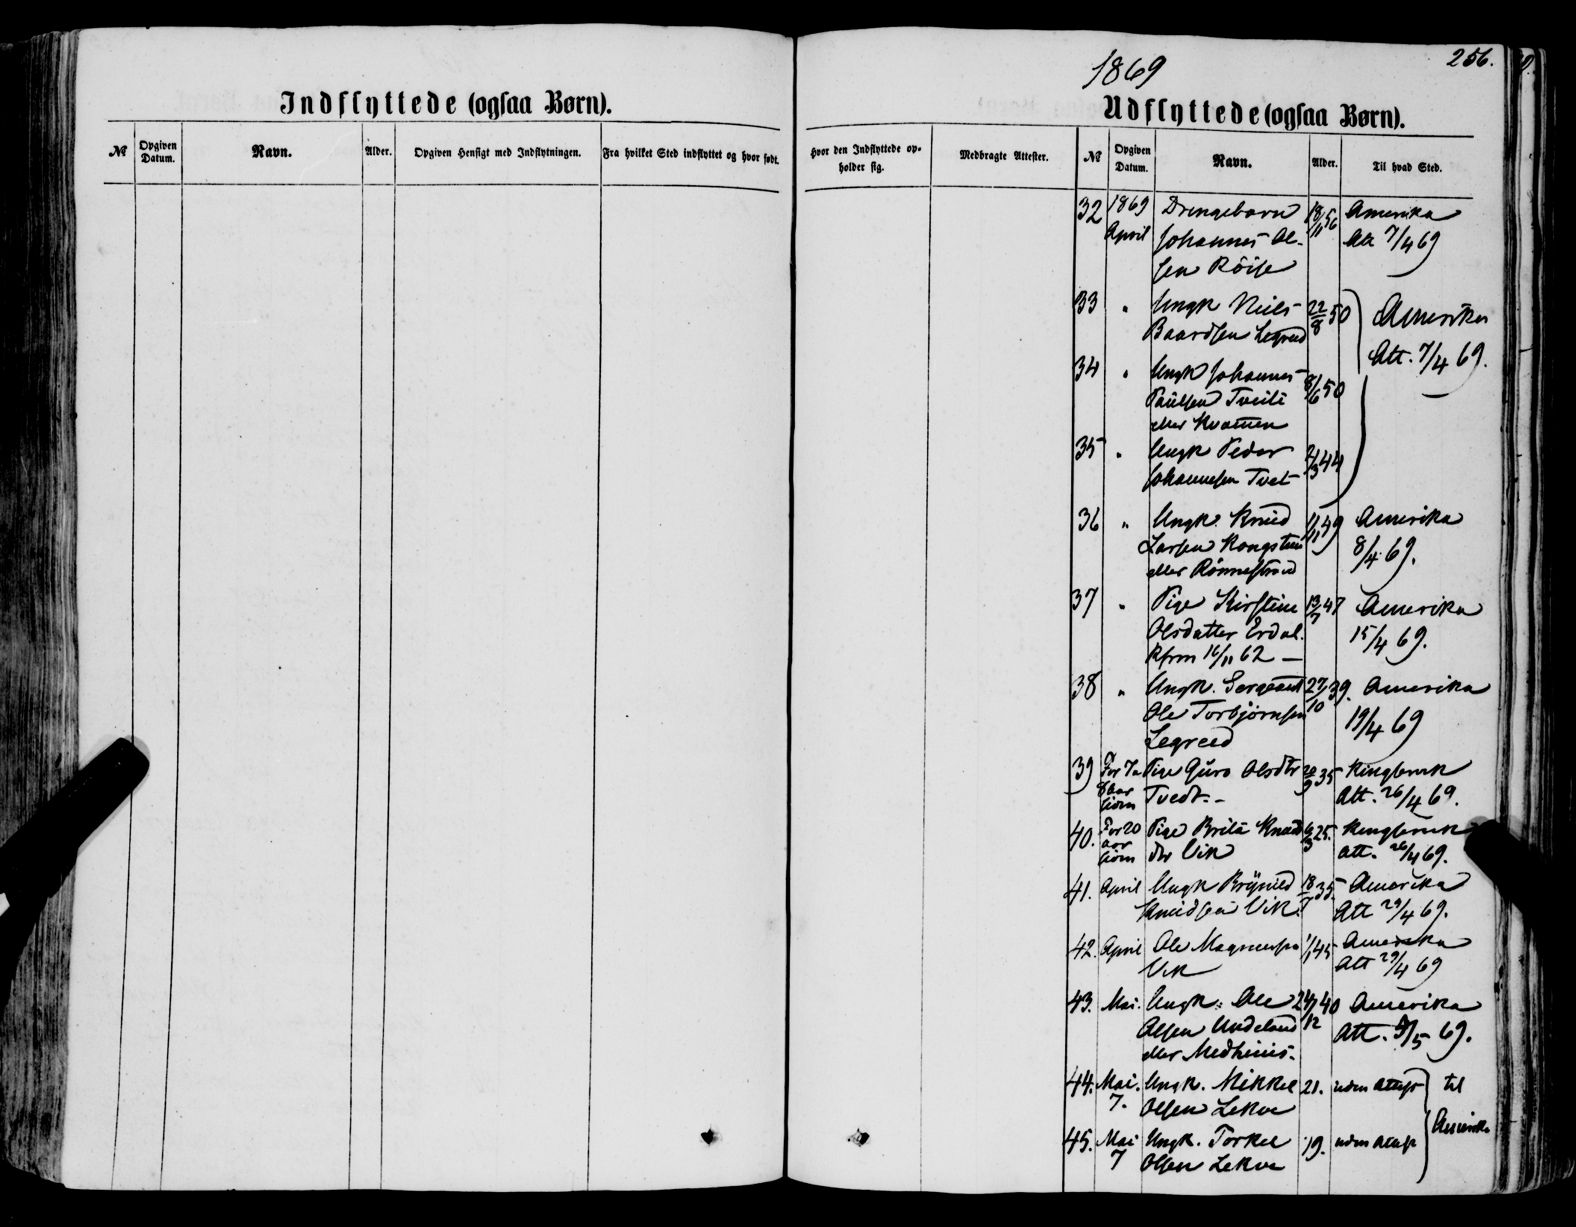 Indflyttede (ogsaa Børn).
№ Opgiven Datum. Navn. Alder. Opgiven Hensigt med Indflytningen. Fra hvilket Sted indflyttet og hvor født.
1869
256.
Udflyttede (ogsaa Børn).
Hvor den Indflyttede opholder sig. Medbragte Attester. № Opgiven Datum. Navn. Alder. Til hvad Sted.
32 1869 Drengebarn 18/11 56 Amerika
April Johannes Ol- Att 7/4 69
sen Röise
33 " Ungk Niels 22/8 50 Amerika
Baardsen Legreid Att. 7/4 69.
34 " Ungk Johannes 8/6 50
Paulsen Tveite
eller Kvamen
35 " Ungk Peder 2/3 44
Johannesen Tvet
36 " Ungk. Knud 11/11 49 Amerika
Larsen Kongstun 8/4 69.
eller Rönnestrand
37 " Pige Kirstine 13/7 47 Amerika
Olsdatter Erdal. 15/4 69.
Kfrm 16/11 62 —
38 " Ungk. Sergeant 27/10 39. Amerika
Ole Torbjörnsen 19/4 69
Legreid
39 For 7 a Pige Guro Olsdtr 20/9 35 Kingservik
8 aar siden Tvedt. - Att. 26/4 69.
40. For 20 Pige Brita Knuds 6/3 25. Kingservik
aar siden dtr Vik Att. 26/4 69.
41. April Ungk Brynild 18/7 35. Amerika
Knudsen Vik. Att 29/4 69.
42. April Ole Magnussen 1/1 45 Amerika
Vik Att 29/4 69
43. Mai. Ungk: Ole 24/12 40 Amerika
Olsen Undeland Att. 3/5 69.
eller Medhuus.
44. Mai. Ungk. Mikkel 21. uden Attest til
7. Olsen Lekve Amerika
45. Mai Ungk. Torkel 19. uden Attest
7 Olsen Lekve